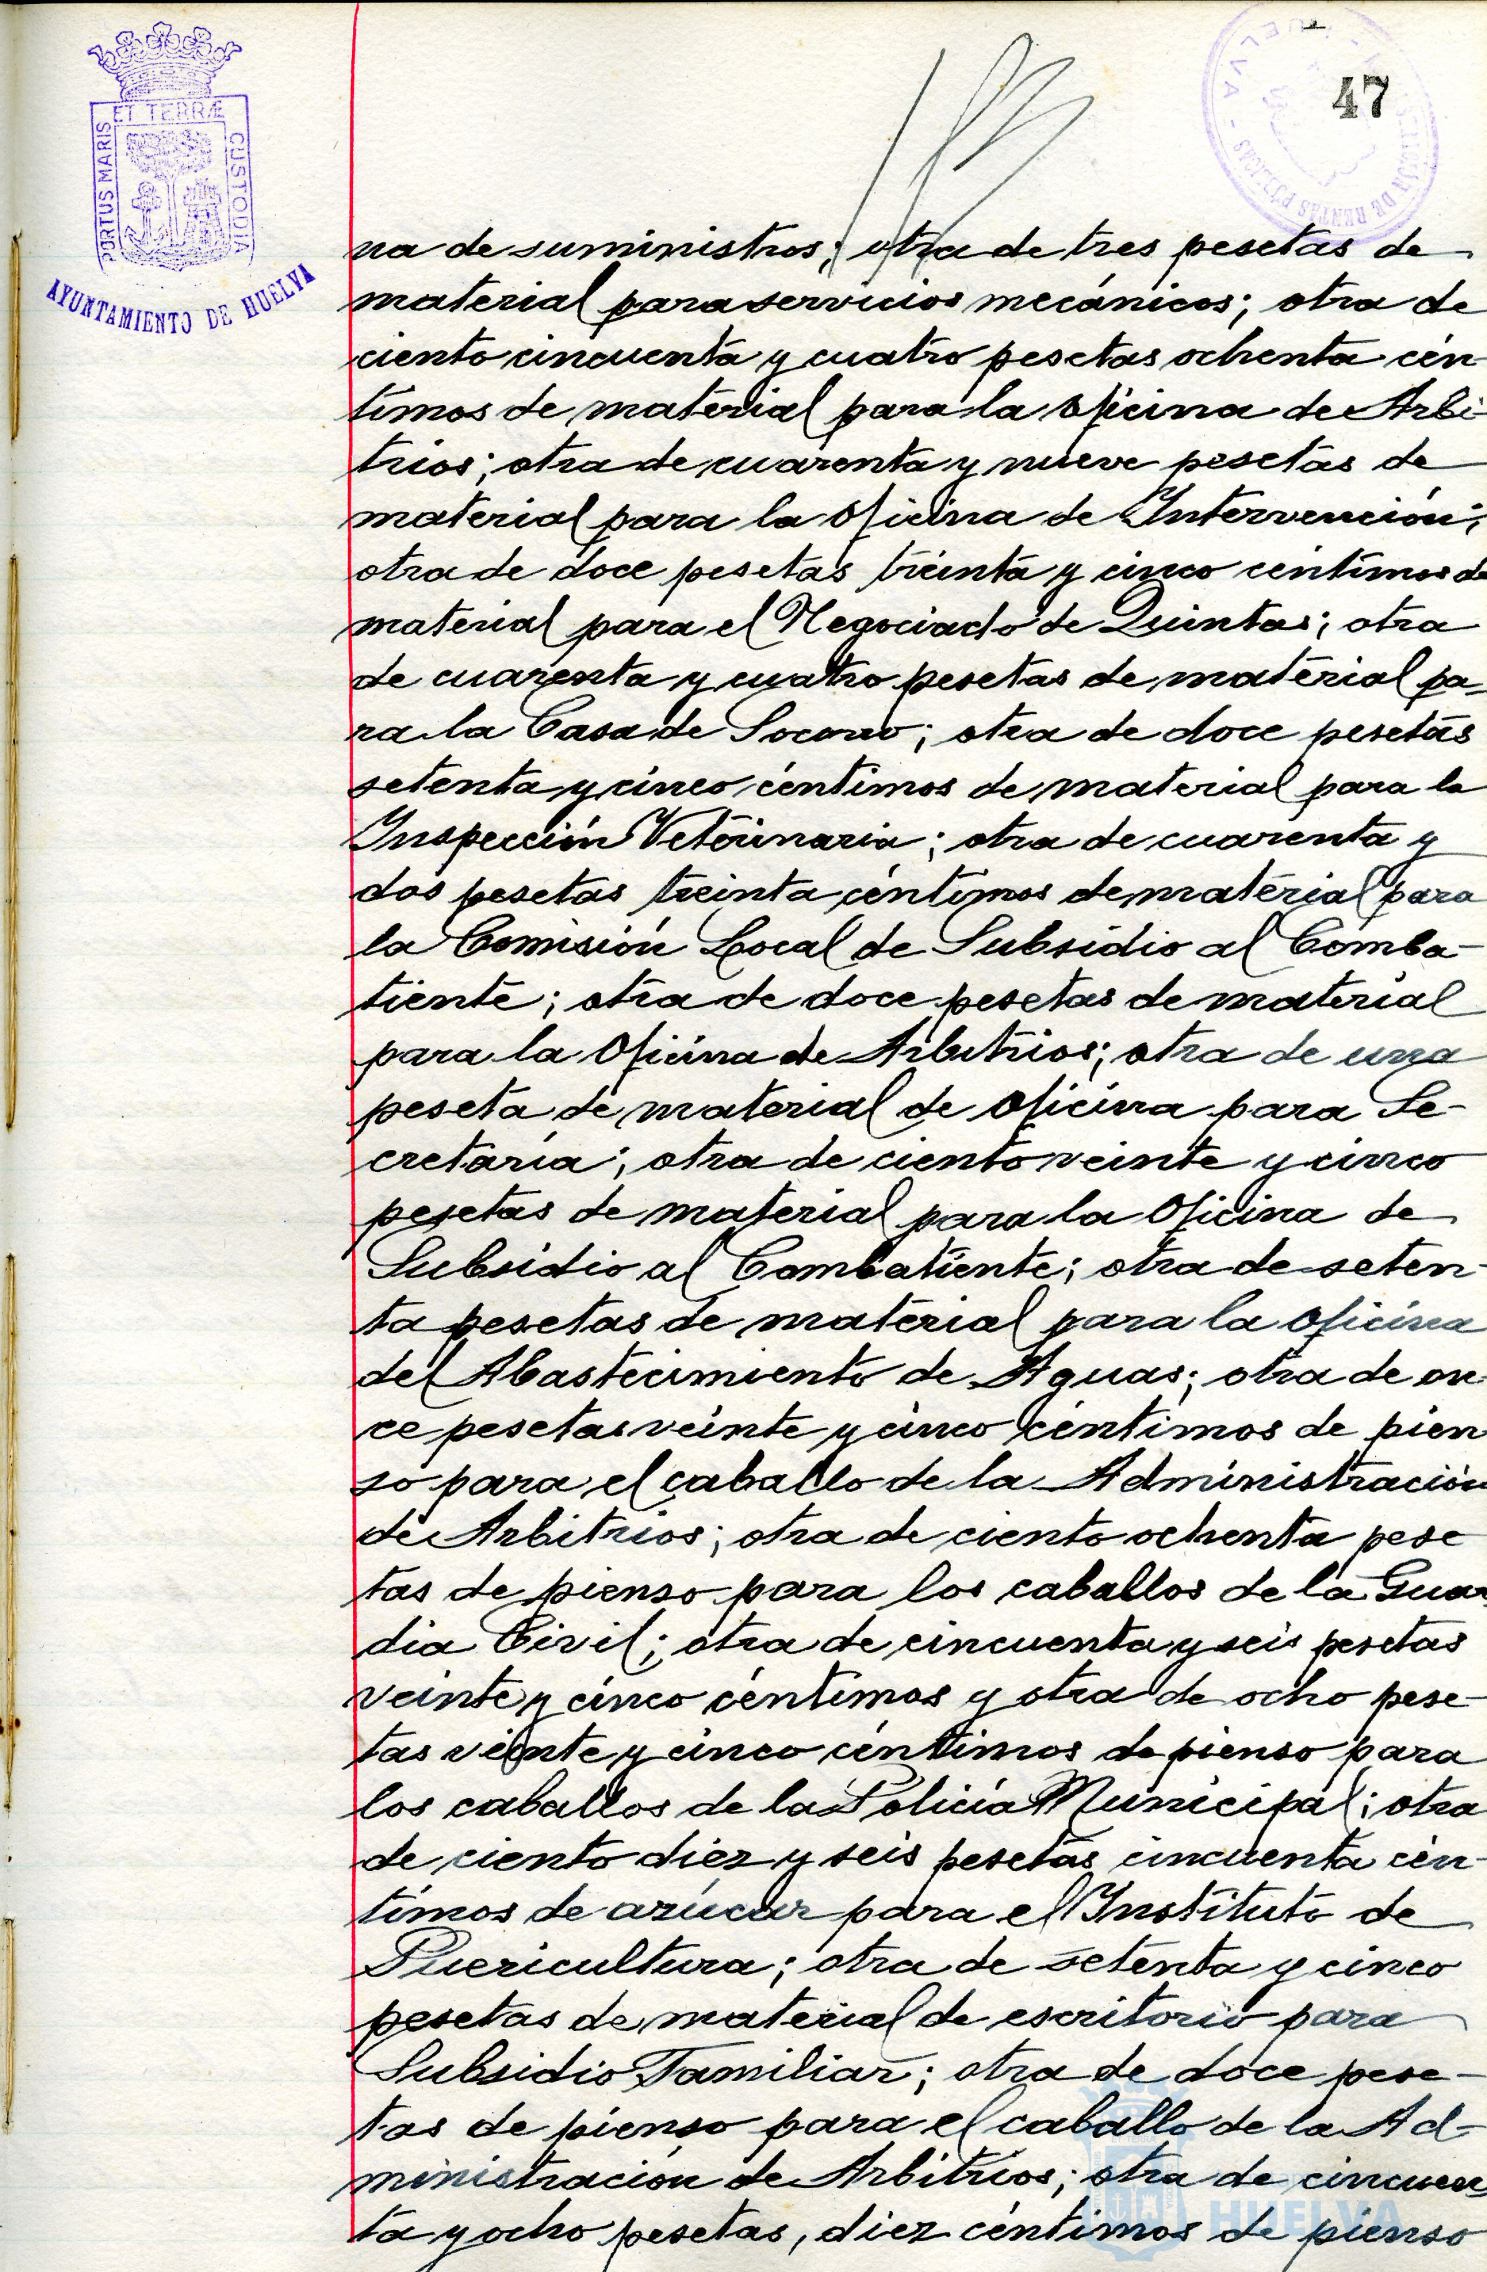 47
ET TERRÆ
PORTUS MARIS
CUSTODIA
AYUNTAMIENTO DE HUELVA
na de suministros; otra de tres pesetas de
material para servicios mecánicos; otra de
ciento cincuenta y cuatro pesetas ochenta cén-
timos de material para la oficina de Arbi-
trios; otra de cuarenta y nueve pesetas de
material para la Oficina de Intervención;
otra de doce pesetas treinta y cinco céntimos de
material para el Negociado de Quintas; otra
de cuarenta y cuatro pesetas de material pa-
ra la Casa de Socorro; otra de doce pesetas
setenta y cinco céntimos de material para la
Inspección Veterinaria; otra de cuarenta y
dos pesetas treinta céntimos de material para
la Comisión Local de Subsidio al Comba-
tiente; otra de doce pesetas de material
para la Oficina de Arbitrios; otra de una
peseta de material de oficina para Se-
cretaría; otra de ciento veinte y cinco
pesetas de material para la Oficina de
Subsidio al Combatiente; otra de seten-
ta pesetas de material para la Oficina
del Abastecimiento de Aguas; otra de on-
ce pesetas veinte y cinco céntimos de pien
so para el caballo de la Administración
de Arbitrios; otra de ciento ochenta pese
tas de pienso para los caballos de la Guar
dia Civil; otra de cincuenta y seis pesetas
veinte y cinco céntimos y otra de ocho pese-
tas veinte y cinco céntimos de pienso para
los caballos de la Policía Municipal; otra
de ciento diez y seis pesetas cincuenta cén-
timos de azúcar para el Instituto de
Puericultura; otra de setenta y cinco
pesetas de material de escritorio para
Subsidio Familiar; otra de doce pese-
tas de pienso para el caballo de la Ad-
ministración de Arbitrios; otra de cincuen
ta y ocho pesetas, diez céntimos de pienso
HUELVA